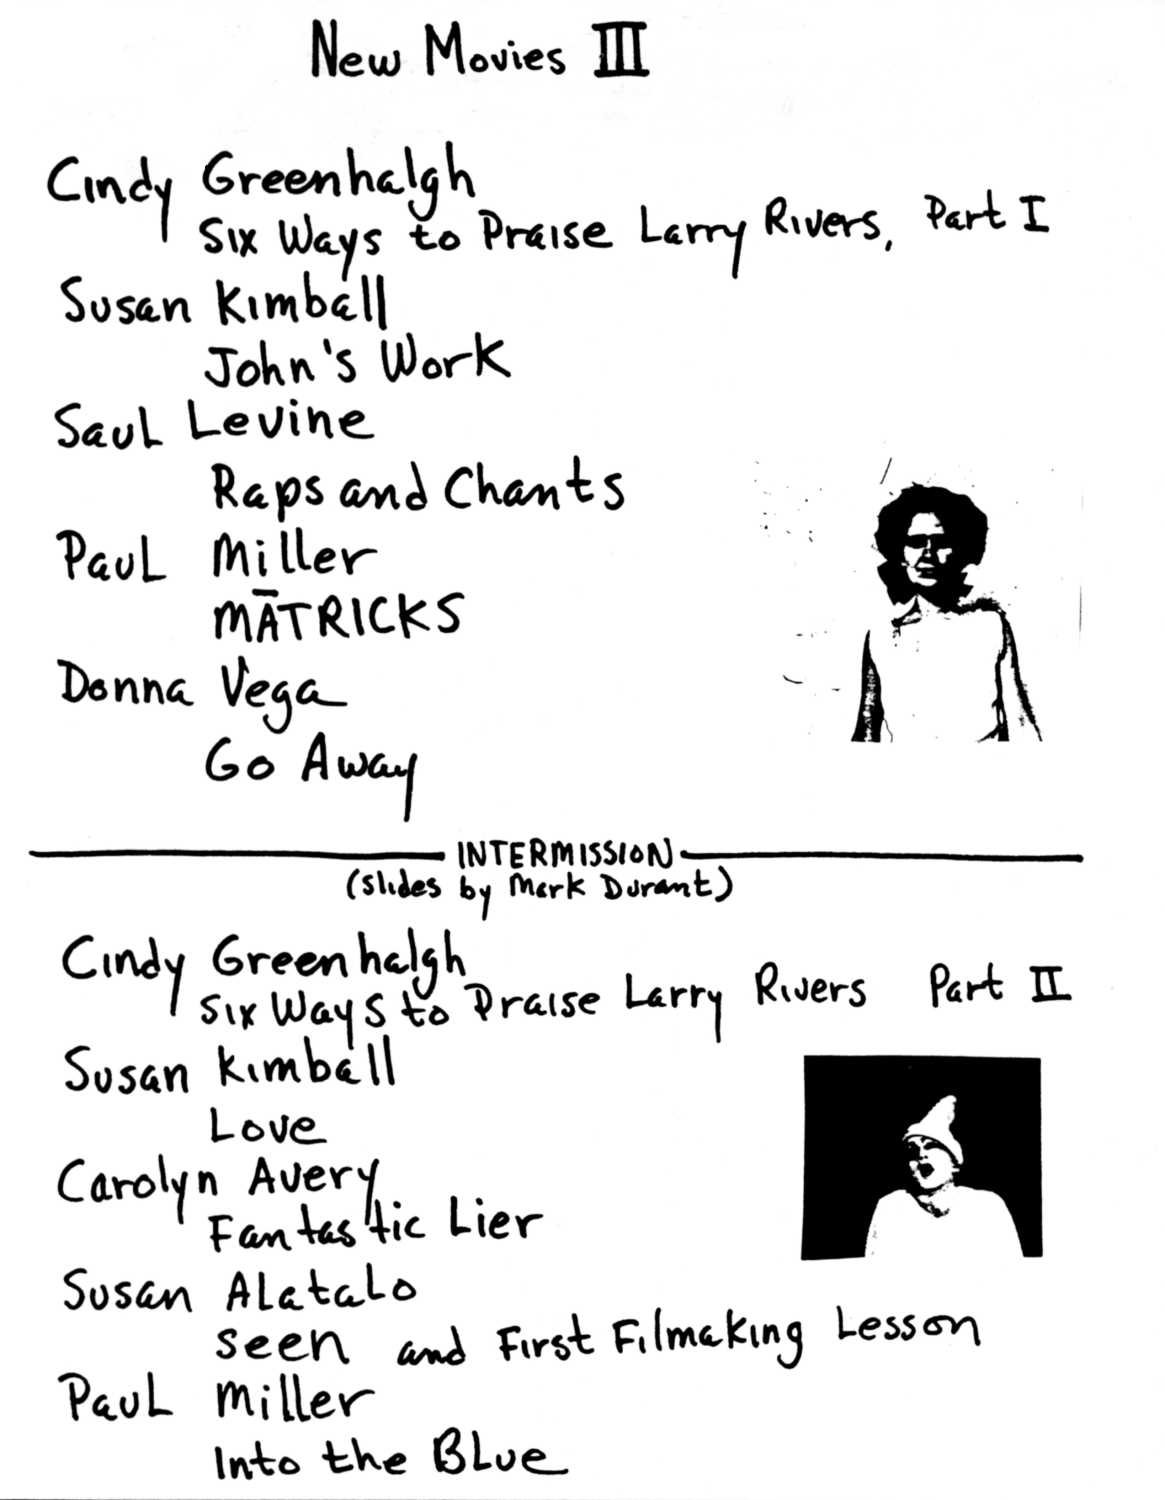 New Movies III
Cindy Greenhalgh
Six Ways to Praise Larry Rivers, Part I
Susan Kimball
John's Work
Saul Levine
Raps and Chants
Paul Miller
MĀTRICKS
Donna Vega
Go Away
INTERMISSION
(slides by Mark Durant)
Cindy Greenhalgh
Six Ways to Praise Larry Rivers Part II
Susan Kimball
Love
Carolyn Avery
Fantastic Lier
Susan Alatalo
Seen and First Filmaking Lesson
Paul Miller
Into the Blue